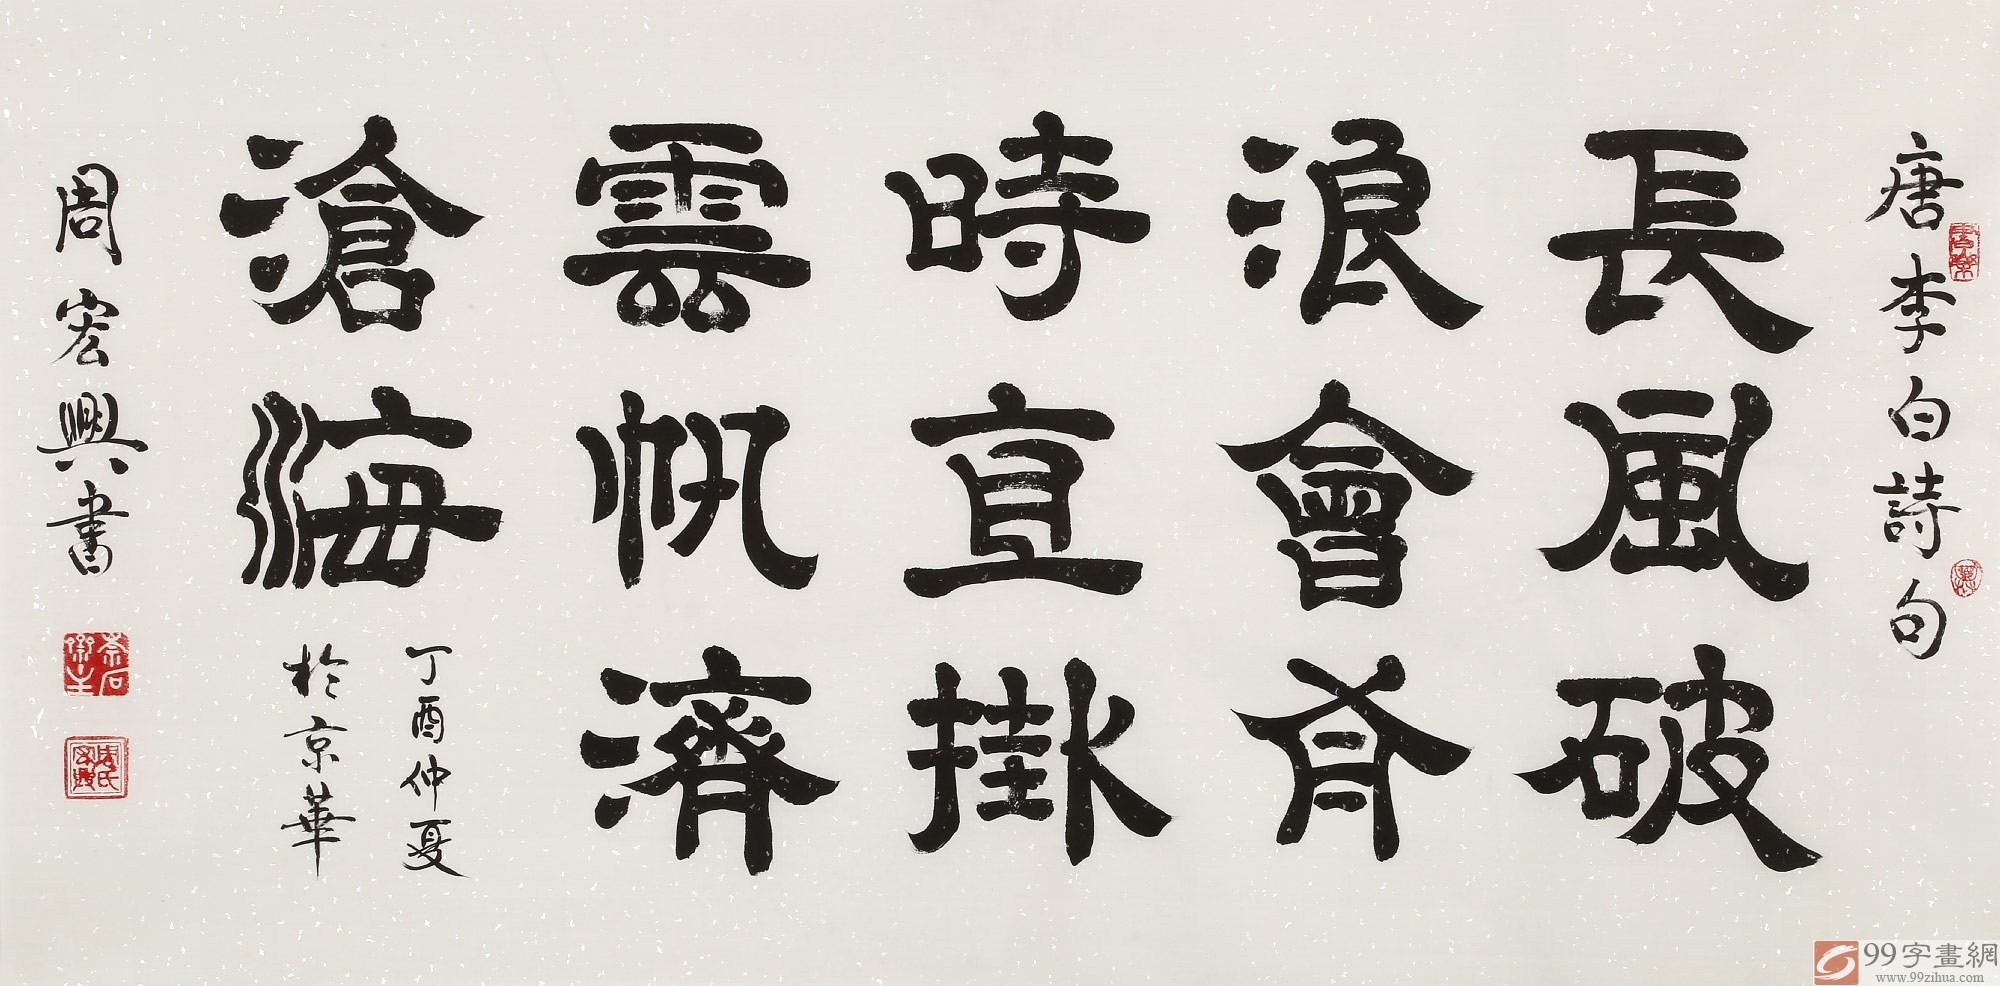 唐李白詩句
長風破
浪會有
時直掛
雲帆濟
滄海
丁酉仲夏
於京華
周宏興書
99字畫網
www.99zihua.com